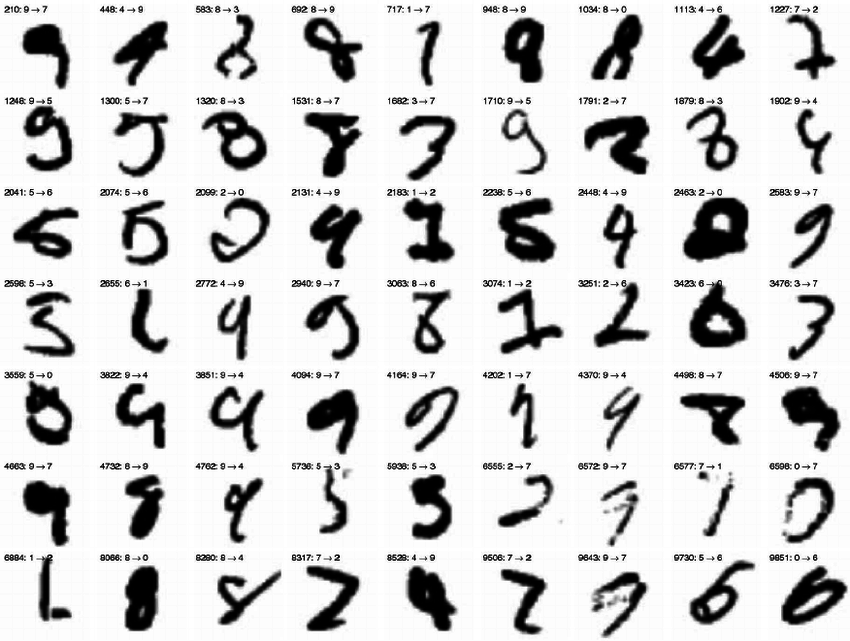 210: 9→7 448: 4→9 583: 8→3 692: 8→9 717: 1→7 948: 8→9 1034: 8→0 1113: 4→6 1227: 7→2
1248: 9→5 1300: 5→7 1320: 8→3 1531: 8→7 1682: 3→7 1710: 9→5 1791: 2→7 1879: 8→3 1902: 9→4
2041: 5→6 2074: 5→6 2099: 2→0 2131: 4→9 2183: 1→2 2238: 5→6 2448: 4→9 2463: 2→0 2583: 9→7
2598: 5→3 2655: 6→1 2772: 4→9 2940: 9→7 3063: 8→6 3074: 1→2 3251: 2→6 3423: 6→0 3476: 3→7
3559: 5→0 3822: 9→4 3851: 9→4 4094: 9→7 4164: 9→7 4202: 1→7 4370: 9→4 4498: 8→7 4506: 9→7
4663: 9→7 4732: 8→9 4762: 9→4 5736: 5→3 5938: 5→3 6555: 2→7 6572: 9→7 6577: 7→1 6598: 0→7
6884: 1→2 8066: 8→0 8280: 8→4 8317: 7→2 8528: 4→9 9506: 7→2 9643: 9→7 9730: 5→6 9851: 0→6